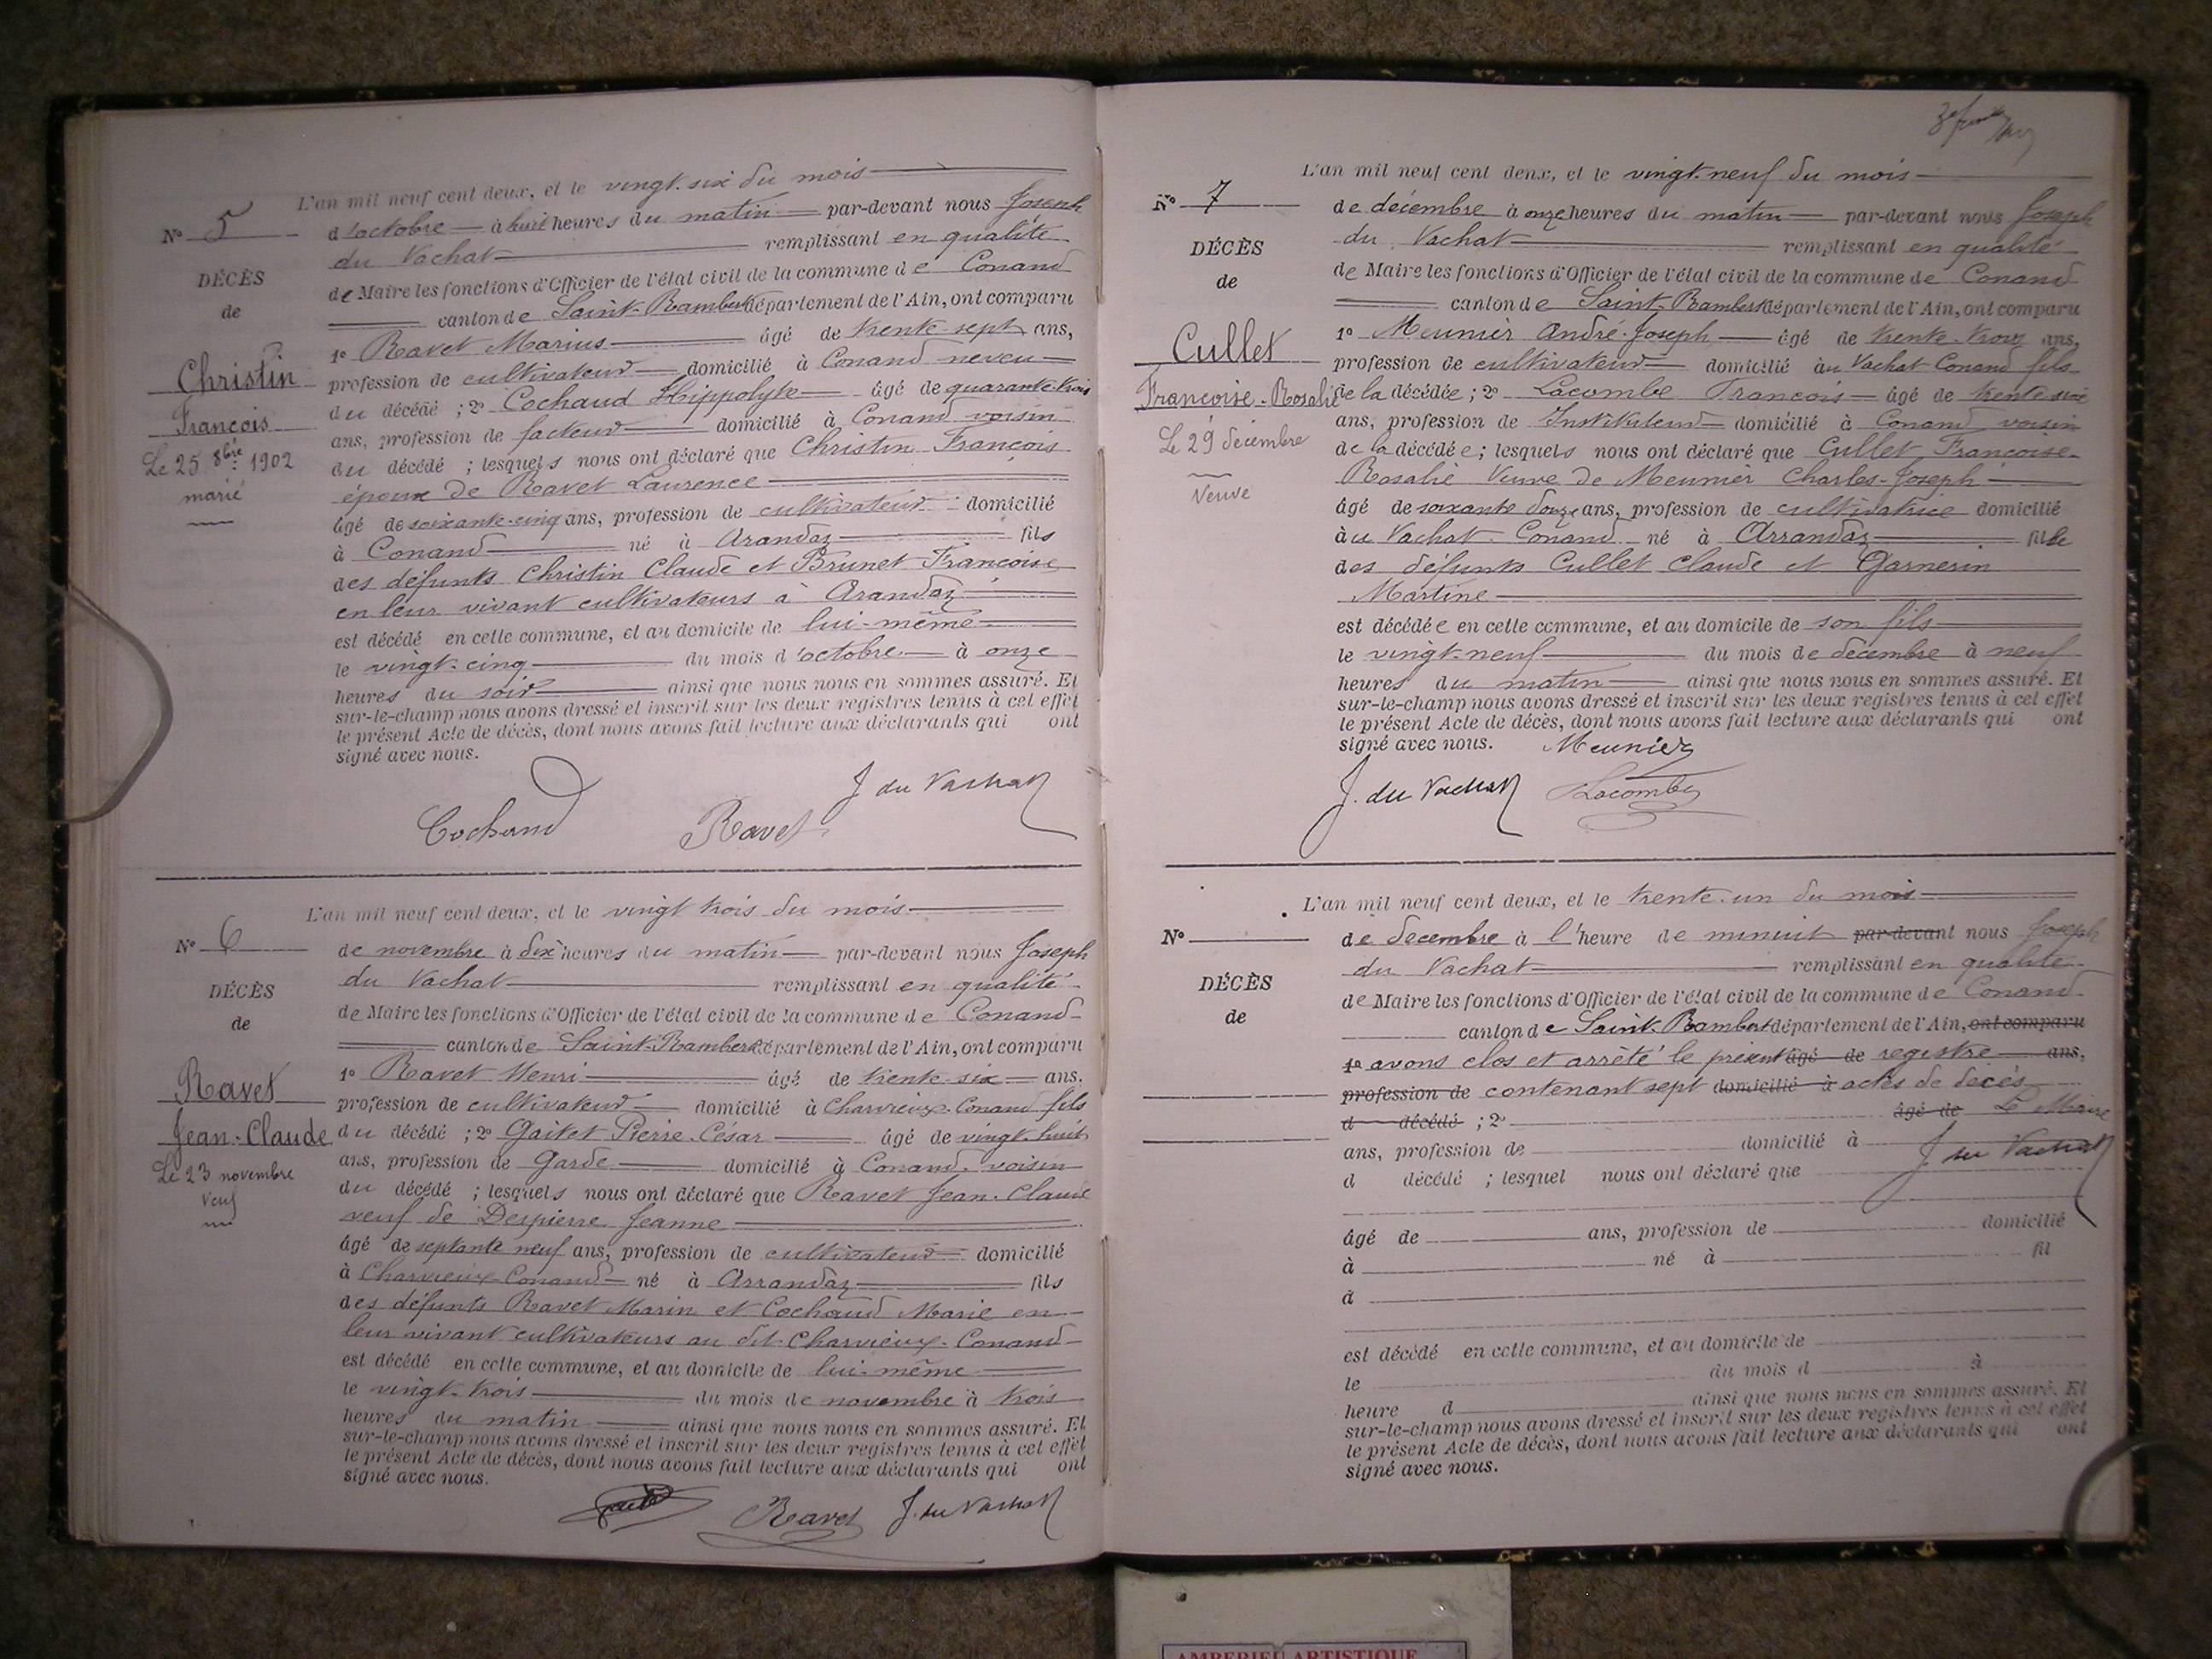 L'an mil neuf cent deux, et le vingt-six du mois
N° 5
d'octobre à huit heures du matin par-devant nous Joseph
du Vachat remplissant en qualité
DÉCÈS
de
de Maire les fonctions d'Officier de l'état civil de la commune de Conand
canton de Saint-Rambert département de l'Ain, ont comparu
1° Ravet Marius âgé de trente-sept ans,
Christin
François
Le 25 8bre 1902
marié
profession de cultivateur domicilié à Conand neveu
du décédé ; 2° Cochaud Hippolyte âgé de quarante-trois
ans, profession de facteur domicilié à Conand voisin
du décédé ; lesquels nous ont déclaré que Christin François
époux de Ravet Laurence
âgé de soixante-cinq ans, profession de cultivateur domicilié
à Conand né à Arandaz fils
des défunts Christin Claude et Brunet Françoise
en leur vivant cultivateurs à Arandaz
est décédé en cette commune, et au domicile de lui-même
le vingt-cinq du mois d'octobre à onze
heures du soir ainsi que nous nous en sommes assuré. Et
sur-le-champ nous avons dressé et inscrit sur les deux registres tenus à cet effet
le présent Acte de décès, dont nous avons fait lecture aux déclarants qui ont
signé avec nous.
J du Vachat
Cochaud Ravet
L'an mil neuf cent deux, et le vingt trois du mois
N° 6
de novembre à dix heures du matin par-devant nous Joseph
du Vachat remplissant en qualité
DÉCÈS
de
de Maire les fonctions d'Officier de l'état civil de la commune de Conand
canton de Saint-Rambert département de l'Ain, ont comparu
Ravet
Jean-Claude
Le 23 novembre
Veuf
1° Ravet Henri âgé de trente-six ans,
profession de cultivateur domicilié à Charvieux-Conand fils
du décédé ; 2° Gaitet Pierre-César âgé de vingt-huit
ans, profession de Garde domicilié à Conand, voisin
du décédé ; lesquels nous ont déclaré que Ravet Jean-Claude
veuf de Despierre Jeanne
âgé de septante neuf ans, profession de cultivateur domicilié
à Charvieux-Conand né à Arrandaz fils
des défunts Ravet Marin et Cochaud Marie en
leur vivant cultivateurs au dit Charvieux-Conand
est décédé en cette commune, et au domicile de lui-même
le vingt-trois du mois de novembre à trois
heures du matin ainsi que nous nous en sommes assuré. Et
sur-le-champ nous avons dressé et inscrit sur les deux registres tenus à cet effet
le présent Acte de décès, dont nous avons fait lecture aux déclarants qui ont
signé avec nous.
Ravet J. du Vachat
L'an mil neuf cent deux, et le vingt-neuf du mois
N° 7
de décembre à onze heures du matin par-devant nous Joseph
du Vachat remplissant en qualité
DÉCÈS
de
de Maire les fonctions d'Officier de l'état civil de la commune de Conand
canton de Saint-Rambert département de l'Ain, ont comparu
Cullet
Françoise-Rosalie
Le 29 décembre
Veuve
1° Meunier André-Joseph âgé de trente-trois ans,
profession de cultivateur domicilié au Vachat Conand fils
de la décédée ; 2° Lacombe François âgé de trente six
ans, profession de Instituteur domicilié à Conand voisin
de la décédée ; lesquels nous ont déclaré que Cullet Françoise-
Rosalie Veuve de Meunier Charles-Joseph
âgé de soixante douze ans, profession de cultivatrice domicilié
au Vachat-Conand né à Arrandaz fille
des défunts Cullet Claude et Garnerin
Martine
est décédée en cette commune, et au domicile de son fils
le vingt-neuf du mois de décembre à neuf
heures du matin ainsi que nous nous en sommes assuré. Et
sur-le-champ nous avons dressé et inscrit sur les deux registres tenus à cet effet
le présent Acte de décès, dont nous avons fait lecture aux déclarants qui ont
signé avec nous. Meunier
J. du Vachat Lacombe
L'an mil neuf cent deux, et le trente-un du mois
N°
de décembre à l'heure de minuit par-devant nous Joseph
du Vachat remplissant en qualité
DÉCÈS
de
de Maire les fonctions d'Officier de l'état civil de la commune de Conand
canton de Saint-Rambert département de l'Ain, ont comparu
1° avons clos et arrêté le présent âgé de registre ans,
profession de contenant sept domicilié à actes de décès
d décédé ; 2° âgé de Le Maire
ans, profession de domicilié à
J du Vachat
d décédé ; lesquel nous ont déclaré que
âgé de ans, profession de domicilié
à né à fil
d
est décédé en cette commune, et au domicile de
le du mois d à
heure d ainsi que nous nous en sommes assuré. Et
sur-le-champ nous avons dressé et inscrit sur les deux registres tenus à cet effet
le présent Acte de décès, dont nous avons fait lecture aux déclarants qui ont
signé avec nous.
AMBERIEU ARTISTIQUE